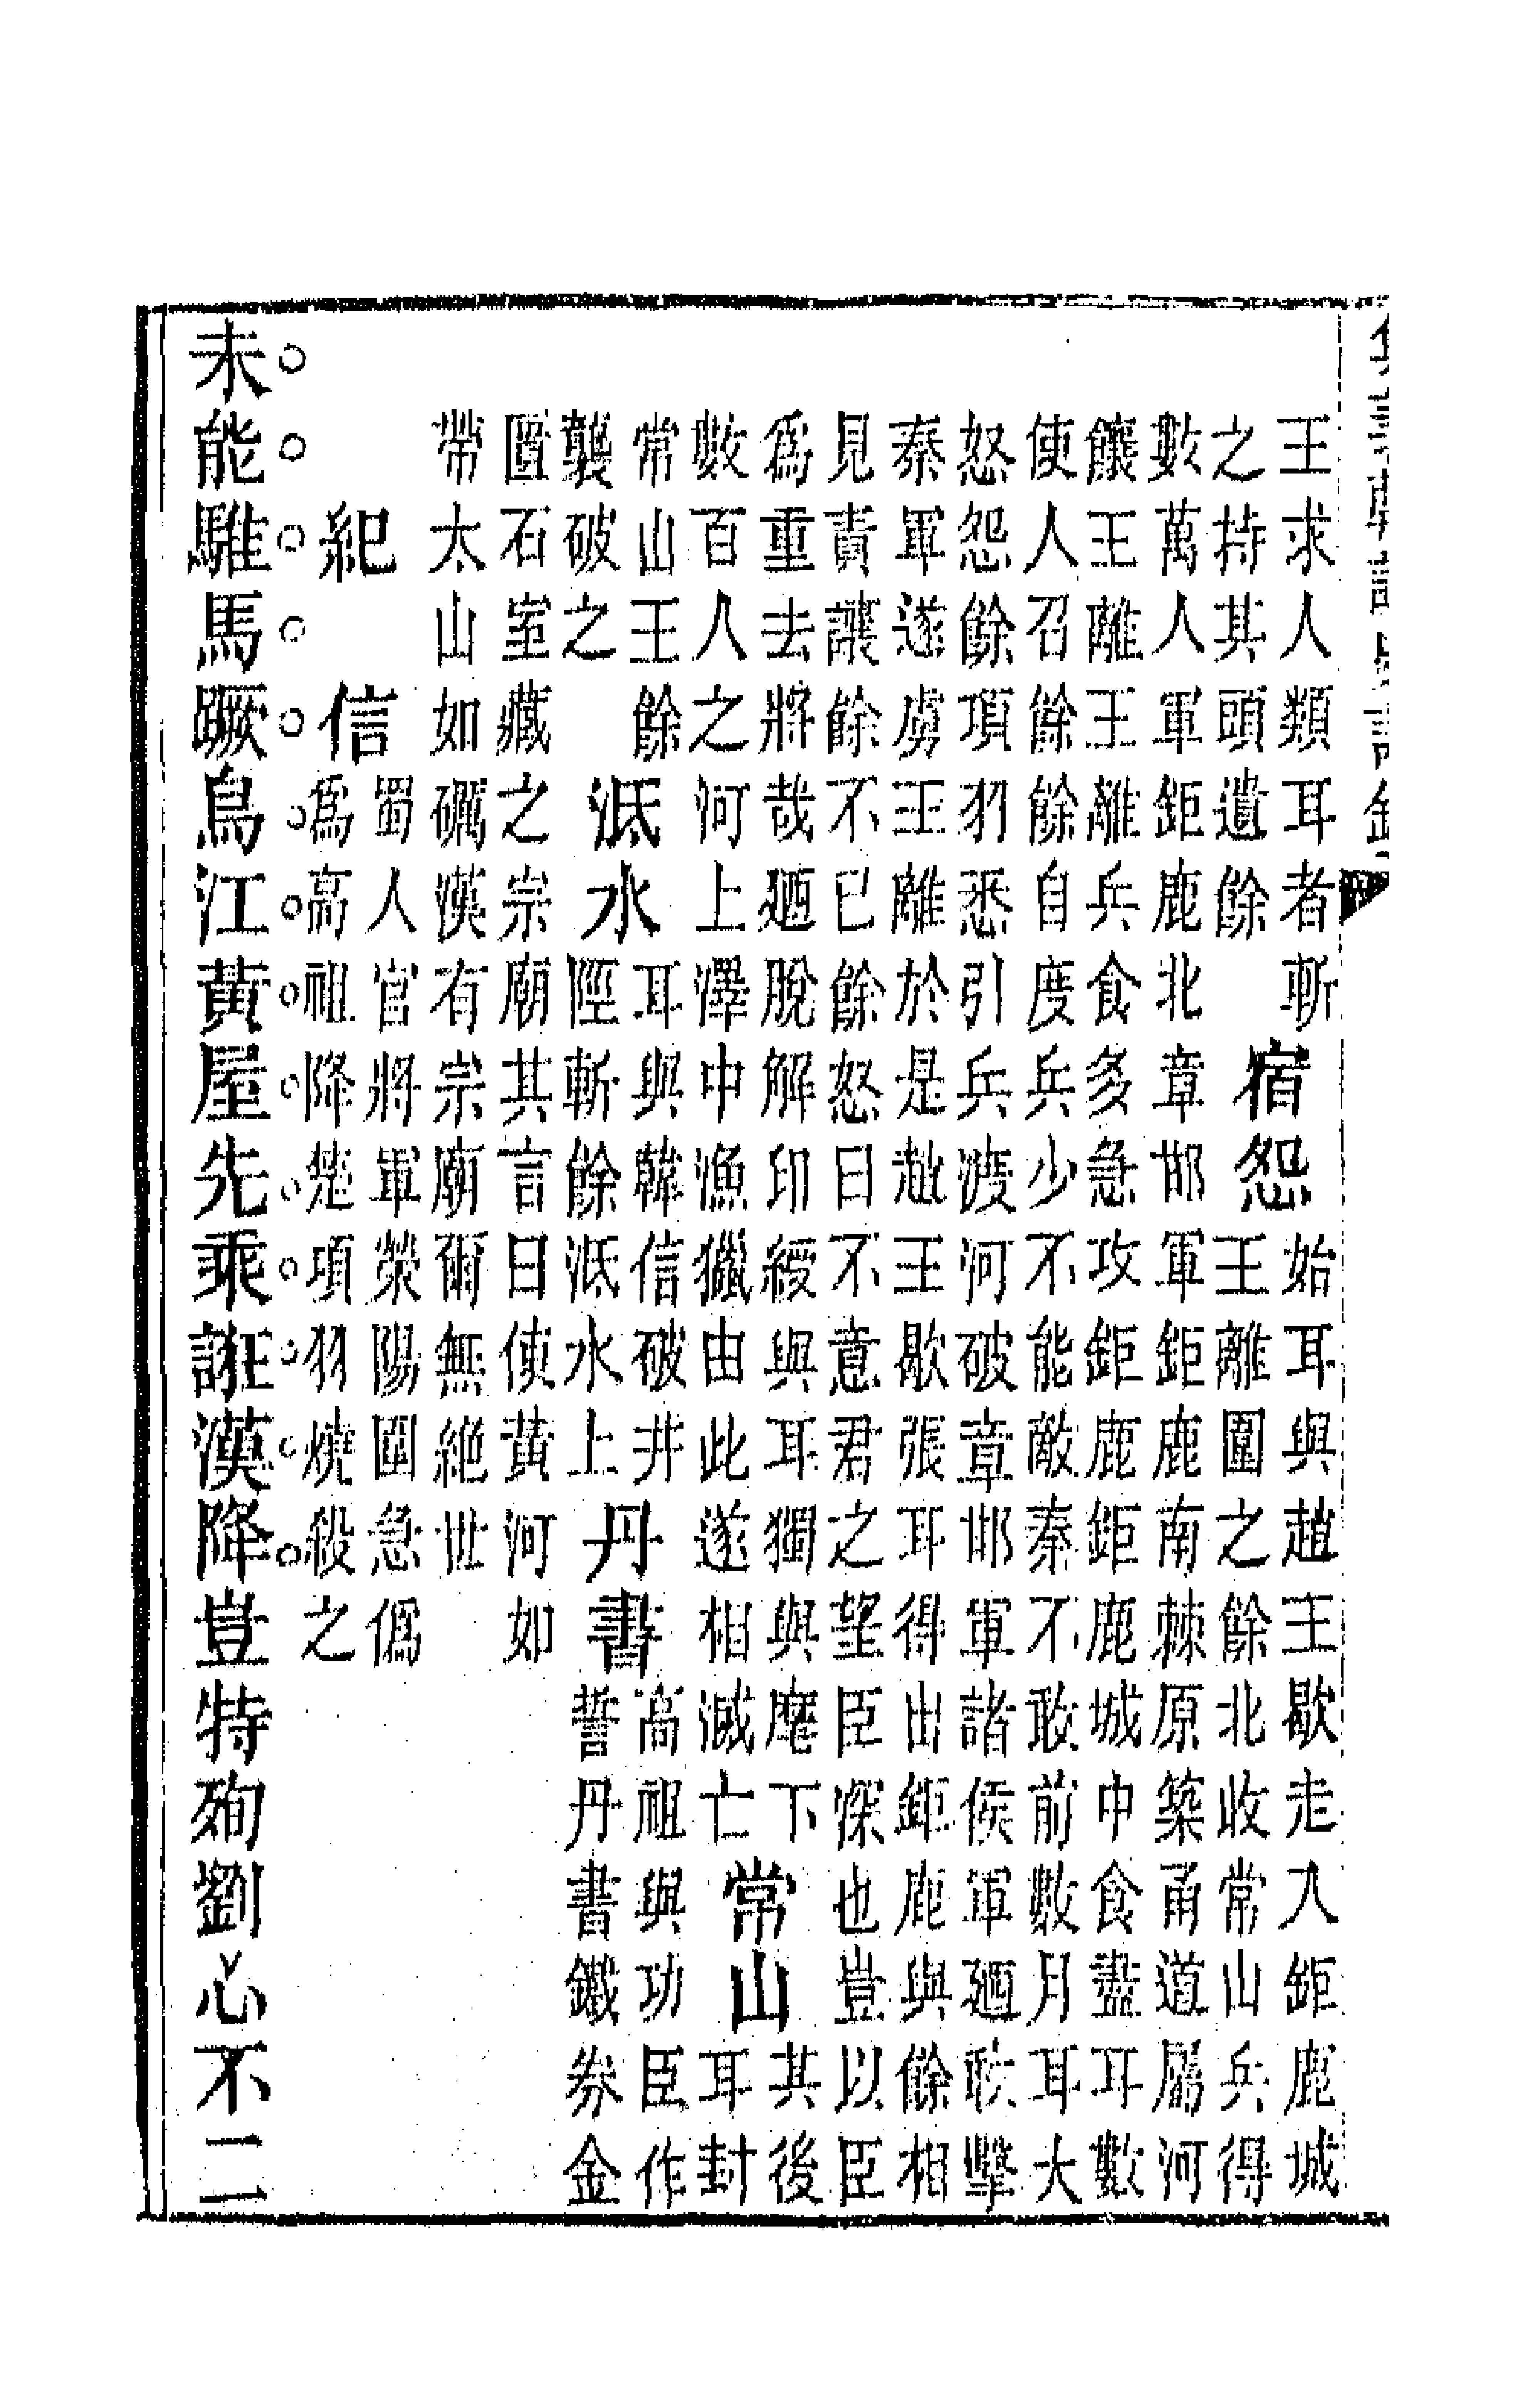 王求人類耳者斬
之持其頭遺餘
宿怨
始耳與趙王歇走入鉅鹿城
王離圍之餘北收常山兵得
數萬人軍鉅鹿北章邯軍鉅鹿南棘原築甬道屬河
饟王離王離兵食多急攻鉅鹿鉅鹿城中食盡耳數
使人召餘餘自度兵少不能敵秦不敢前數月耳大
怒怨餘項羽悉引兵渡河破章邯軍諸侯軍廼敢擊
秦軍遂虜王離於是趙王歇張耳得出鉅鹿與餘相
見責讓餘不已餘怒曰不意君之望臣深也豈以臣
爲重去將哉廼脫解印綬與耳獨與麾下
數百人之河上澤中漁獵由此遂相滅亡
常山
其後
耳封
常山王餘
襲破之
泜水
耳與韓信破井
陘斬餘泜水上
丹書
高祖與功臣作
誓丹書鐵券金
匱石室藏之宗廟其言曰使黃河如
帶太山如礪漢有宗廟爾無絕世
紀信
蜀人官將軍滎陽圍急僞
爲高祖降楚項羽燒殺之
未能騅馬蹶烏江黃屋先乘誑漢降豈特殉劉心不二